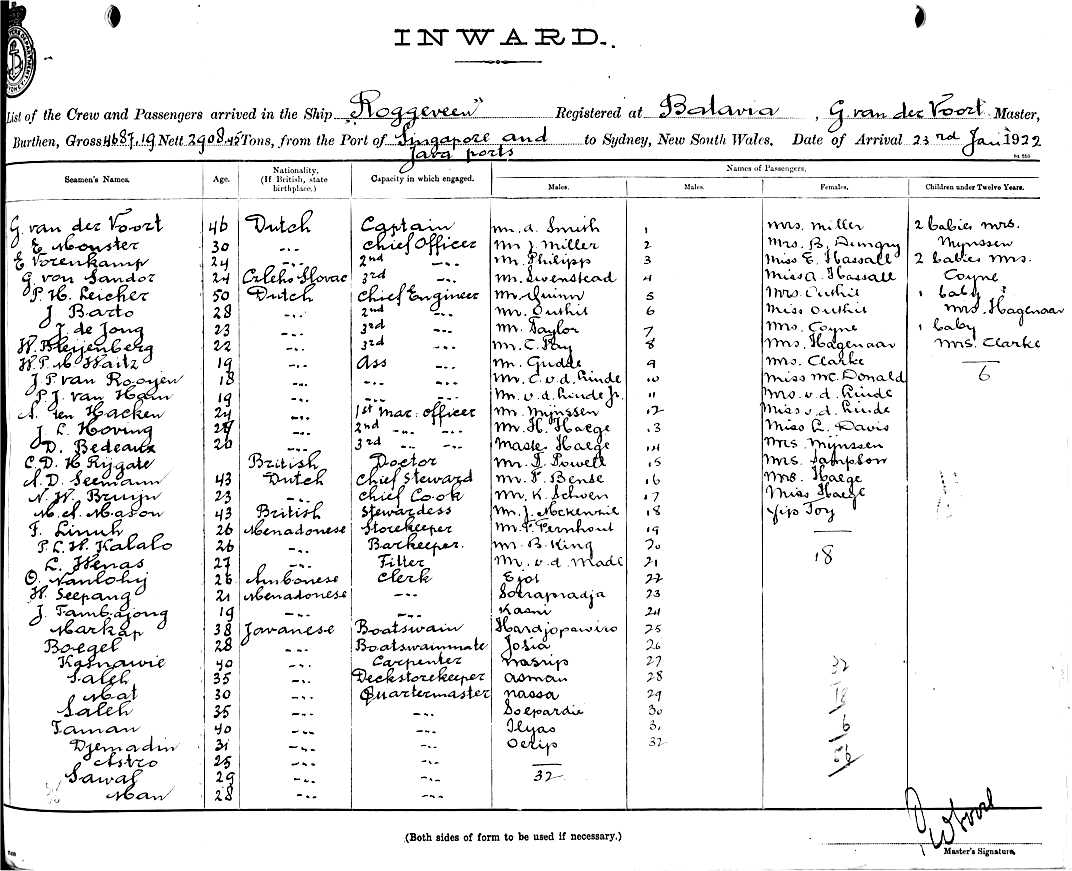 INWARD.
List of the Crew and Passengers arrived in the Ship "Roggeveen" Registered at Batavia , G. van der Voort Master,
Burthen, Gross 4687.19 Nett 2908.42 Tons, from the Port of Singapore and Java ports to Sydney, New South Wales, Date of Arrival 23rd Jan 1922
Seamen's Names. Age. Nationality, (If British, state birthplace.) Capacity in which engaged. Names of Passengers.
Males. Males. Females. Children under Twelve Years.
G. van der Voort 46 Dutch Captain Mr. A. Smith 1 Mrs. Miller 2 babies Mrs.
E. Monster 30 -"- Chief Officer Mr J. Miller 2 Mrs. B. Mynssen
E Vorenkamp 24 -"- 2nd -"- Mr. Philipp 3 Miss E. Hassall 2 babies Mrs.
G. von Sandor 24 3rd -"- Mr. Swenstead 4 Miss A. Hassall Coyne
P. H. Leicher 50 Dutch Chief Engineer Mr Quinn 5 Mrs. Outhit 1 baby
J Barto 28 -"- 2nd -"- Mr. Outhit 6 Miss Outhit Mrs. Hagenaar
J. de Jong 23 -"- 3rd -"- Mr. Taylor 7 Mrs. Coyne 1 baby
W. Bleijenberg 22 -"- 3rd -"- Mr. C. Fay 8 Mrs. Hagenaar Mrs. Clarke
W. P. M Waitz 19 -"- Ass -"- Mr. Gudde 9 Mrs. Clarke 6
J P. van Rooyen 18 -"- -"- -"- Mr. C. v. d. Linde 10 Miss Mc. Donald
P. J. van Ham 19 -"- -"- -"- Mr. v. d. Linde Jr. 11 Mrs. v. d. Linde
A. ten Hacken 24 -"- 1st Mar: officer Mr. Mijnssen 12 Miss v. d. Linde
J. L. Hoving -"- 2nd -"- -"- Mr. H. Haege 13 Miss L. Davis
D. Bedeaux 26 -"- 3rd -"- -"- Master Haege 14 Mrs Mijnssen
C. D. H Rijgate British Doctor Mr. F. Powell 15 Mrs. Sampson
A. D. Seemann 43 Dutch Chief Steward Mr. F. Bense 16 Mrs. Haege
N. W. Bruyn 23 -"- Chief Cook Mr. K. Schwen 17 Miss Haege
M. A. Mason 43 British Stewardess Mr. J. Mckenzie 18 Yip Toy
F. Linuh 26 Menadonese Storekeeper Mr. F. Pernhout 19
P. L. W. Kalalo 26 -"- Barkeeper. Mr. B. King 20 18
L. Wenas 27 -"- Fitter Mr. v. d. Made 21
O. Nanlohij 26 Ambonese Clerk Ejot 22
W. Seepang 21 Menadonese -"- Soerapradja 23
J. Tambajong 19 -"- -"- Kasni 24
Markap 38 Javanese Boatswain Hardjopawiro 25
Boegel 28 -"- Boatswainmate Josia 26
Kasnawie 40 -"- Carpenter Nasrip 27 32
Saleh 35 -"- Deckstorekeeper Asman 28
Mat 30 -"- Quartermaster Nassa 29 18
Saleh 35 -"- -"- Soepardie 30
Taman 40 -"- -"- Ilyas 31 6
Djemadin 31 -"- -"- Oerip 32 56
Astro 25 -"- -"-
Sawal 29 -"- -"- 32
Man 28 -"- -"-
(Both sides of form to be used if necessary.)
Master's Signature.